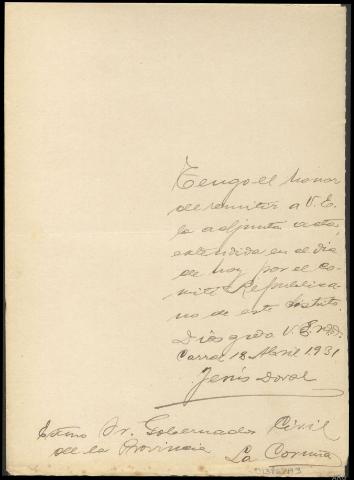 Tengo el honor
de remitir a V.E.
la adjunta acta,
extendida en el dia
de hoy por el Co-
mité Republica-
no de este distrito.
Dios gde a V.E.
18 Abril 1931
Jesús Doval
Exmo Sr. Gobernador Civil
de la Provincia
La Coruña